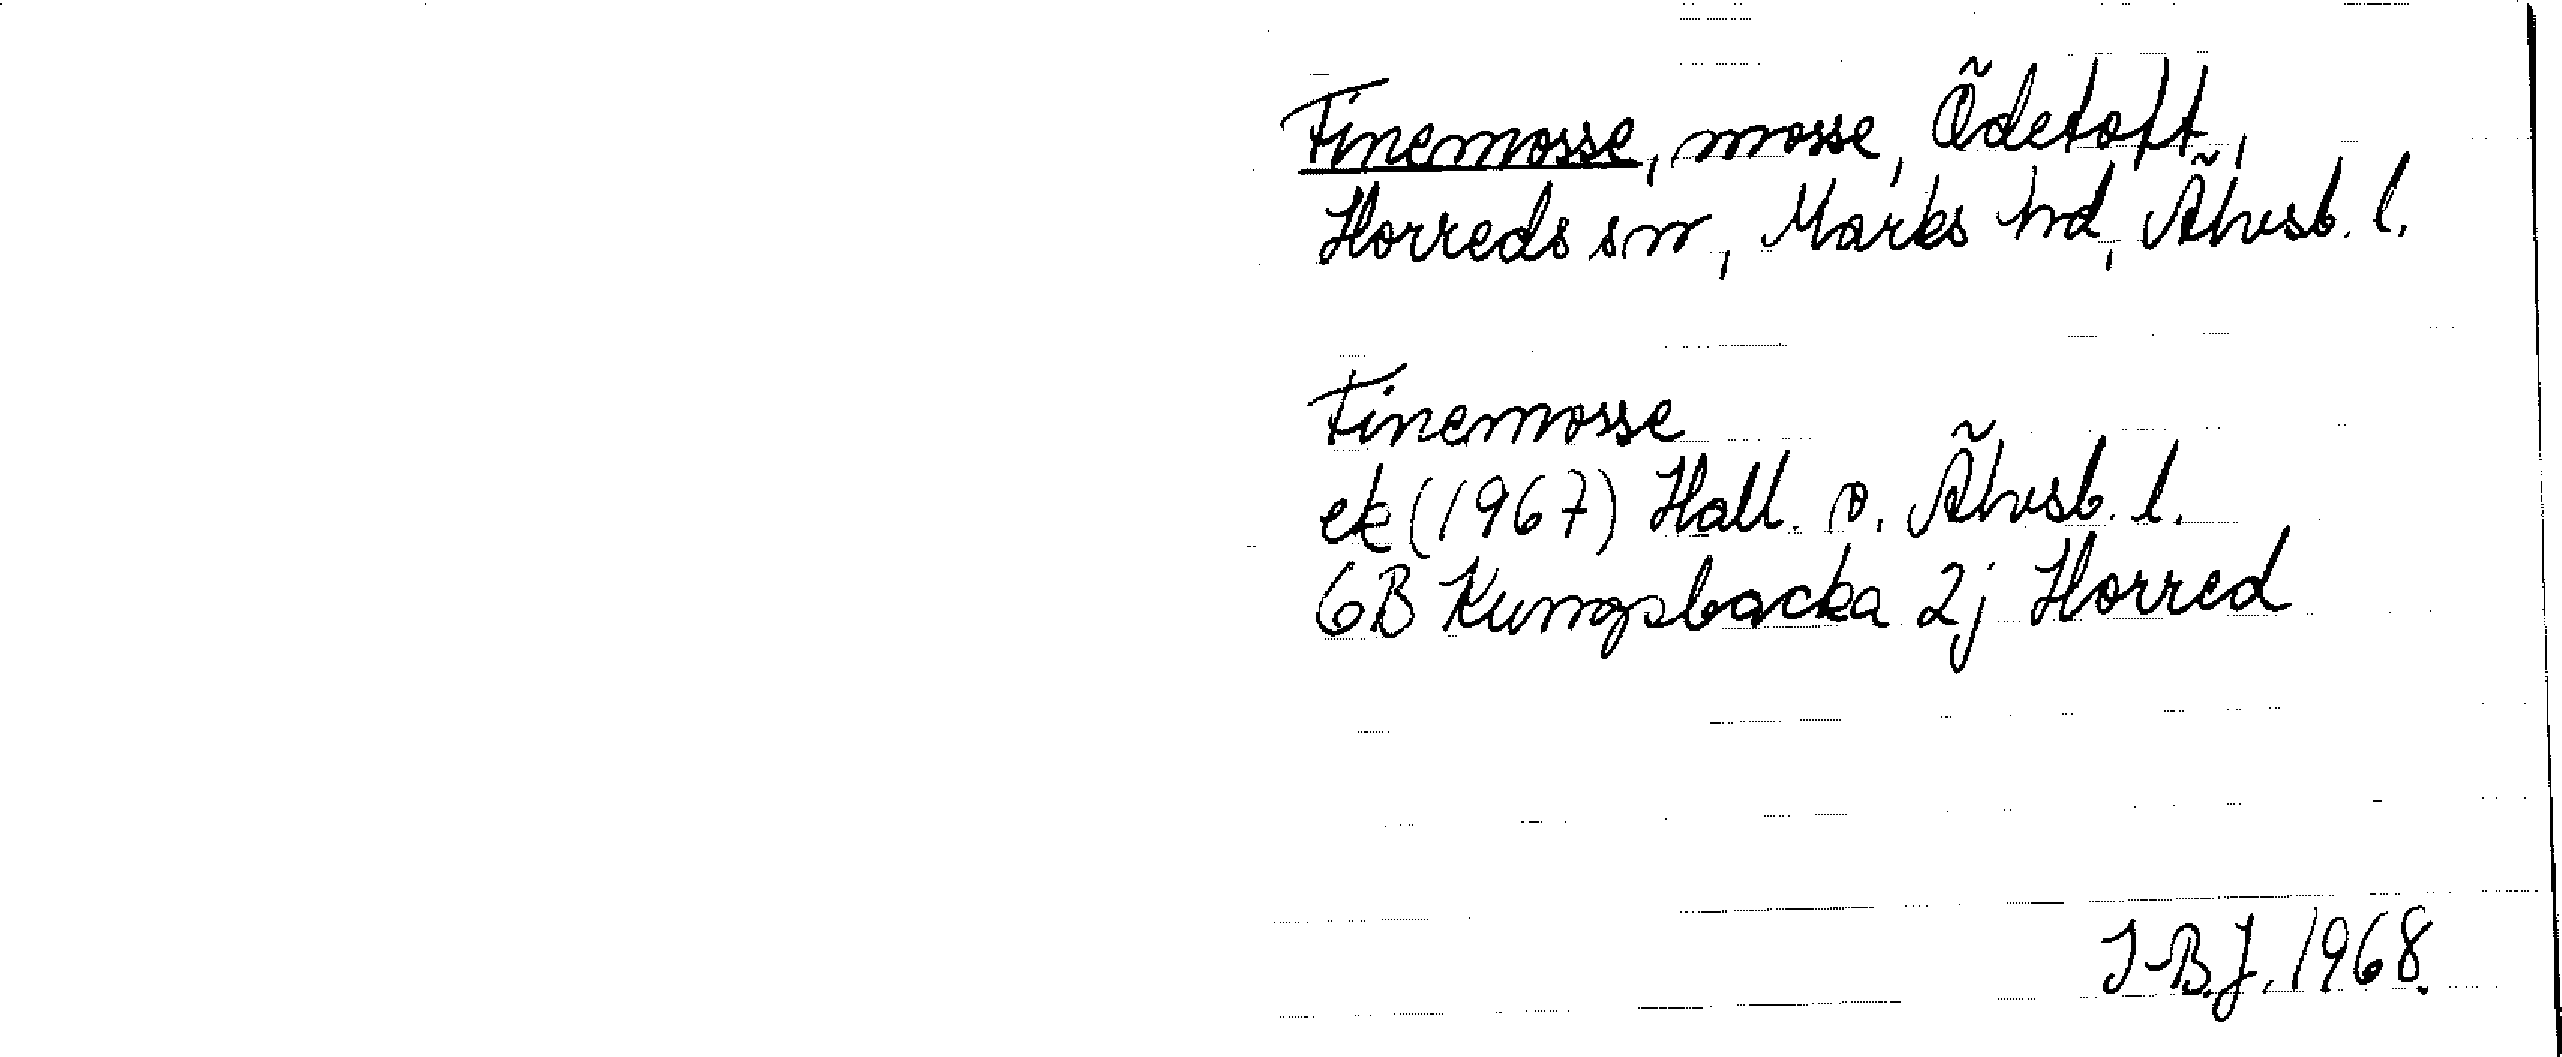 Finemosse, mosse, Ödetoft,
Horreds sn, Marks hd, Älvsb. l.
Finemosse
ek (1967) Hall. o. Älvsb. l.
6B Kungsbacka 2j Horred
I.B.J. 1968.